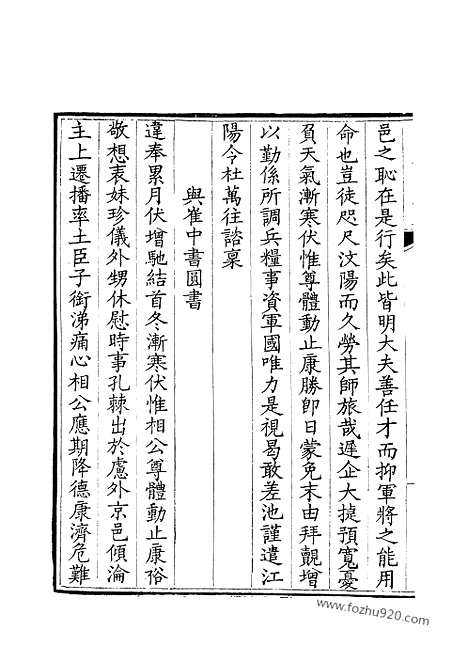 邑之恥在是行矣此皆明大夫善任才而抑軍將之能用
命也豈徒咫尺汶陽而久勞其師旅哉遲企大捷預寬憂
負天氣漸寒伏惟尊體動止康勝卽日蒙免末由拜覿增
以勤係所調兵糧事資軍國唯力是視曷敢差池謹遣江
陽令杜萬往諮稟
與崔中書圓書
違奉累月伏增馳結首冬漸寒伏惟相公尊體動止康裕
敬想衷妹珍儀外甥休慰時事孔棘出於慮外京邑傾淪
主上遷播率土臣子銜涕痛心相公應期降德康濟危難
www.fozhu920.com